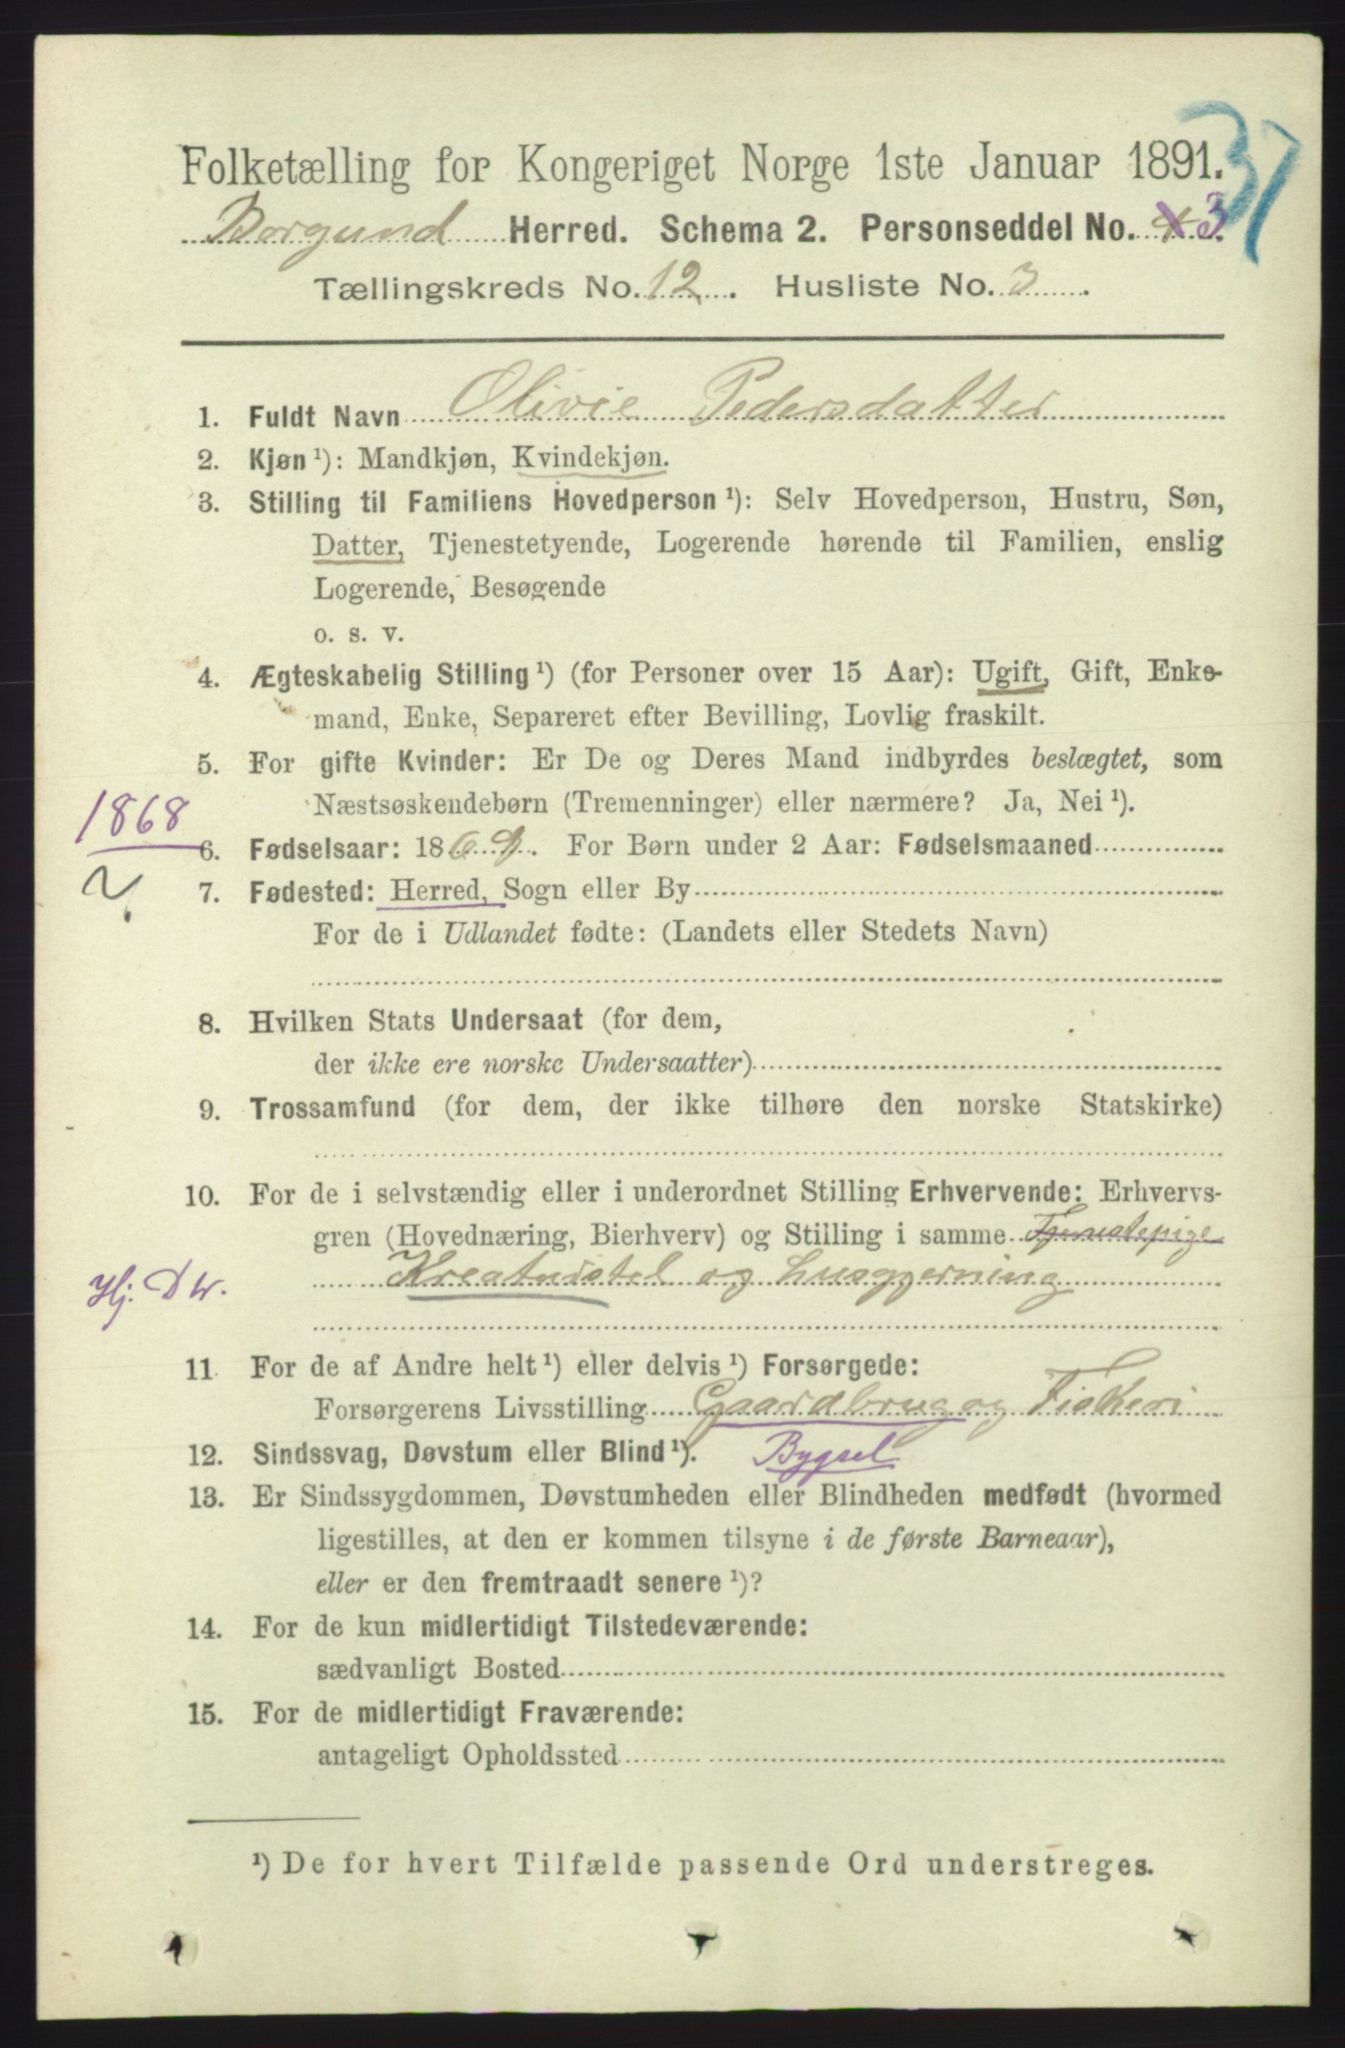 37
Folketælling for Kongeriget Norge 1ste Januar 1891.
Borgund Herred. Schema 2. Personseddel No. 4 3.
Tællingskreds No. 12. Husliste No. 3.
1. Fuldt Navn Olivie Pedersdatter
2. Kjøn ¹): Mandkjøn, Kvindekjøn.
3. Stilling til Familiens Hovedperson ¹): Selv Hovedperson, Hustru, Søn,
Datter, Tjenestetyende, Logerende hørende til Familien, enslig
Logerende, Besøgende
o. s. v.
4. Ægteskabelig Stilling ¹) (for Personer over 15 Aar): Ugift, Gift, Enke-
mand, Enke, Separeret efter Bevilling, Lovlig fraskilt.
5. For gifte Kvinder: Er De og Deres Mand indbyrdes beslægtet, som
Næstsøskendebørn (Tremenninger) eller nærmere? Ja, Nei ¹).
1868
6. Fødselsaar: 1869. For Børn under 2 Aar: Fødselsmaaned
7. Fødested: Herred, Sogn eller By
For de i Udlandet fødte: (Landets eller Stedets Navn)
8. Hvilken Stats Undersaat (for dem,
der ikke ere norske Undersaatter)
9. Trossamfund (for dem, der ikke tilhøre den norske Statskirke)
10. For de i selvstændig eller i underordnet Stilling Erhvervende: Erhvervs-
gren (Hovednæring, Bierhverv) og Stilling i samme Tjenestepige
Hj. D W. Kreaturstel og husgjerning
11. For de af Andre helt ¹) eller delvis ¹) Forsørgede:
Forsørgerens Livsstilling Gaardbrug og Fiskeri
12. Sindssvag, Døvstum eller Blind ¹). Bygsel
13. Er Sindssygdommen, Døvstumheden eller Blindheden medfødt (hvormed
ligestilles, at den er kommen tilsyne i de første Barneaar),
eller er den fremtraadt senere ¹)?
14. For de kun midlertidigt Tilstedeværende:
sædvanligt Bosted
15. For de midlertidigt Fraværende:
antageligt Opholdssted
¹) De for hvert Tilfælde passende Ord understreges.